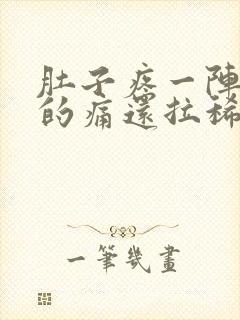 肚子疼一陣
的痛還拉稀
一筆幾畫